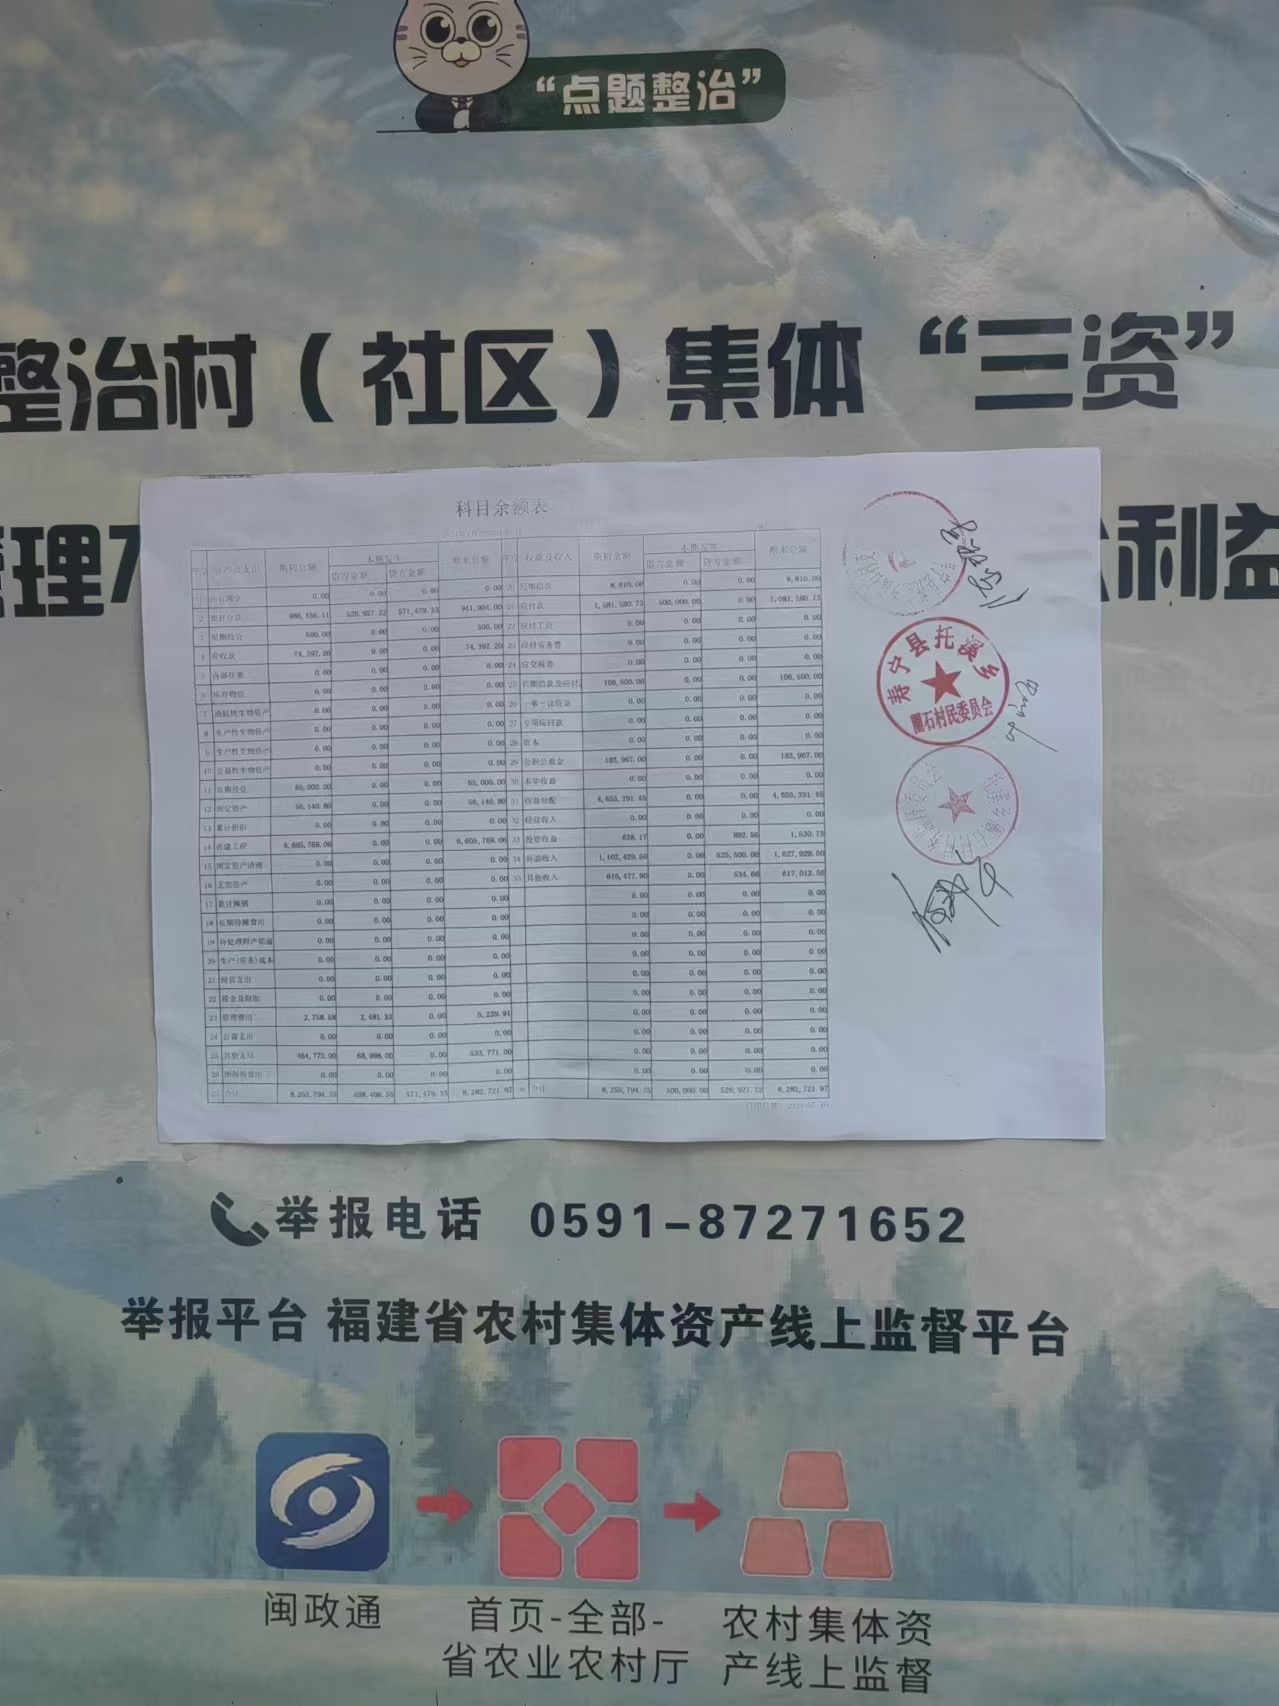 “点题整治”
整治村（社区）集体“三资”
管理
利益
科目余额表
资产及支出 期初金额 本期发生 期末金额 权益及收入 期初金额 本期发生 期末金额
借方金额 贷方金额 借方金额 贷方金额
0.00 0.00 0.00 0.00 8,810.00 0.00 0.00 8,810.00
2 银行存款 986,456.11 526,927.22 571,479.33 941,904.00 应付款 1,581,580.73 500,000.00 0.00 1,081,580.73
3 短期投资 500.00 0.00 0.00 500.00 应付工资 0.00 0.00 0.00 0.00
4 应收款 74,397.20 0.00 0.00 74,397.20 应付劳务费 0.00 0.00 0.00 0.00
0.00 0.00 0.00 0.00 24 应交税费 0.00 0.00 0.00 0.00
6 库存物资 0.00 0.00 0.00 0.00 长期借款及应付 106,500.00 0.00 0.00 106,500.00
7 消耗性生物资产 0.00 0.00 0.00 0.00 26 一事一议资金 0.00 0.00 0.00 0.00
8 生产性生物资产 0.00 0.00 0.00 0.00 27 专项应付款 0.00 0.00 0.00 0.00
9 生产性生物资产 0.00 0.00 0.00 0.00 28 资本 0.00 0.00 0.00 0.00
10 公益性生物资产 0.00 0.00 0.00 0.00 29 公积公益金 183,967.00 0.00 0.00 183,967.00
11 长期投资 65,000.00 0.00 0.00 65,000.00 30 本年收益 0.00 0.00 0.00 0.00
12 固定资产 56,140.80 0.00 0.00 56,140.80 31 收益分配 4,655,391.45 0.00 0.00 4,655,391.45
13 累计折旧 0.00 0.00 0.00 0.00 32 经营收入 0.00 0.00 0.00 0.00
14 在建工程 6,605,769.06 0.00 0.00 6,605,769.06 33 投资收益 638.17 0.00 892.56 1,530.73
15 固定资产清理 0.00 0.00 0.00 0.00 34 补助收入 1,102,429.50 0.00 525,500.00 1,627,929.50
16 无形资产 0.00 0.00 0.00 0.00 35 其他收入 616,477.90 0.00 534.66 617,012.56
17 累计摊销 0.00 0.00 0.00 0.00 0.00 0.00 0.00 0.00
18 长期待摊费用 0.00 0.00 0.00 0.00 0.00 0.00 0.00 0.00
19 待处理财产损溢 0.00 0.00 0.00 0.00 0.00 0.00 0.00 0.00
20 生产(劳务)成本 0.00 0.00 0.00 0.00 0.00 0.00 0.00 0.00
21 经营支出 0.00 0.00 0.00 0.00 0.00 0.00 0.00 0.00
22 税金及附加 0.00 0.00 0.00 0.00 0.00 0.00 0.00 0.00
23 管理费用 2,758.58 2,481.33 0.00 5,239.91 0.00 0.00 0.00 0.00
24 公益支出 0.00 0.00 0.00 0.00 0.00 0.00 0.00 0.00
25 其他支出 464,773.00 68,998.00 0.00 533,771.00 0.00 0.00 0.00 0.00
26 0.00 0.00 0.00 0.00 0.00 0.00 0.00 0.00
27 合计 8,255,794.75 598,406.55 571,479.33 8,282,721.97 合计 8,255,794.75 500,000.00 526,927.22 8,282,721.97
寿宁县托溪乡
圈石村民委员会
举报电话 0591-87271652
举报平台 福建省农村集体资产线上监督平台
闽政通
首页-全部-
省农业农村厅
农村集体资
产线上监督